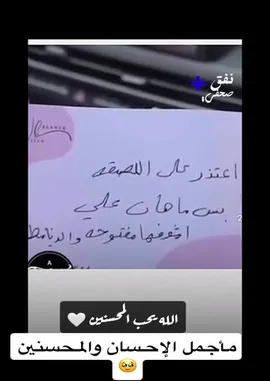 نفق
صحفي
اعتذر على اللصقه
بس ماهان علي
اشوفها مفتوحه والدنيا مطر
الله يحب المحسنين 🤍
مأجمل الإحسان والمحسنين
🥺